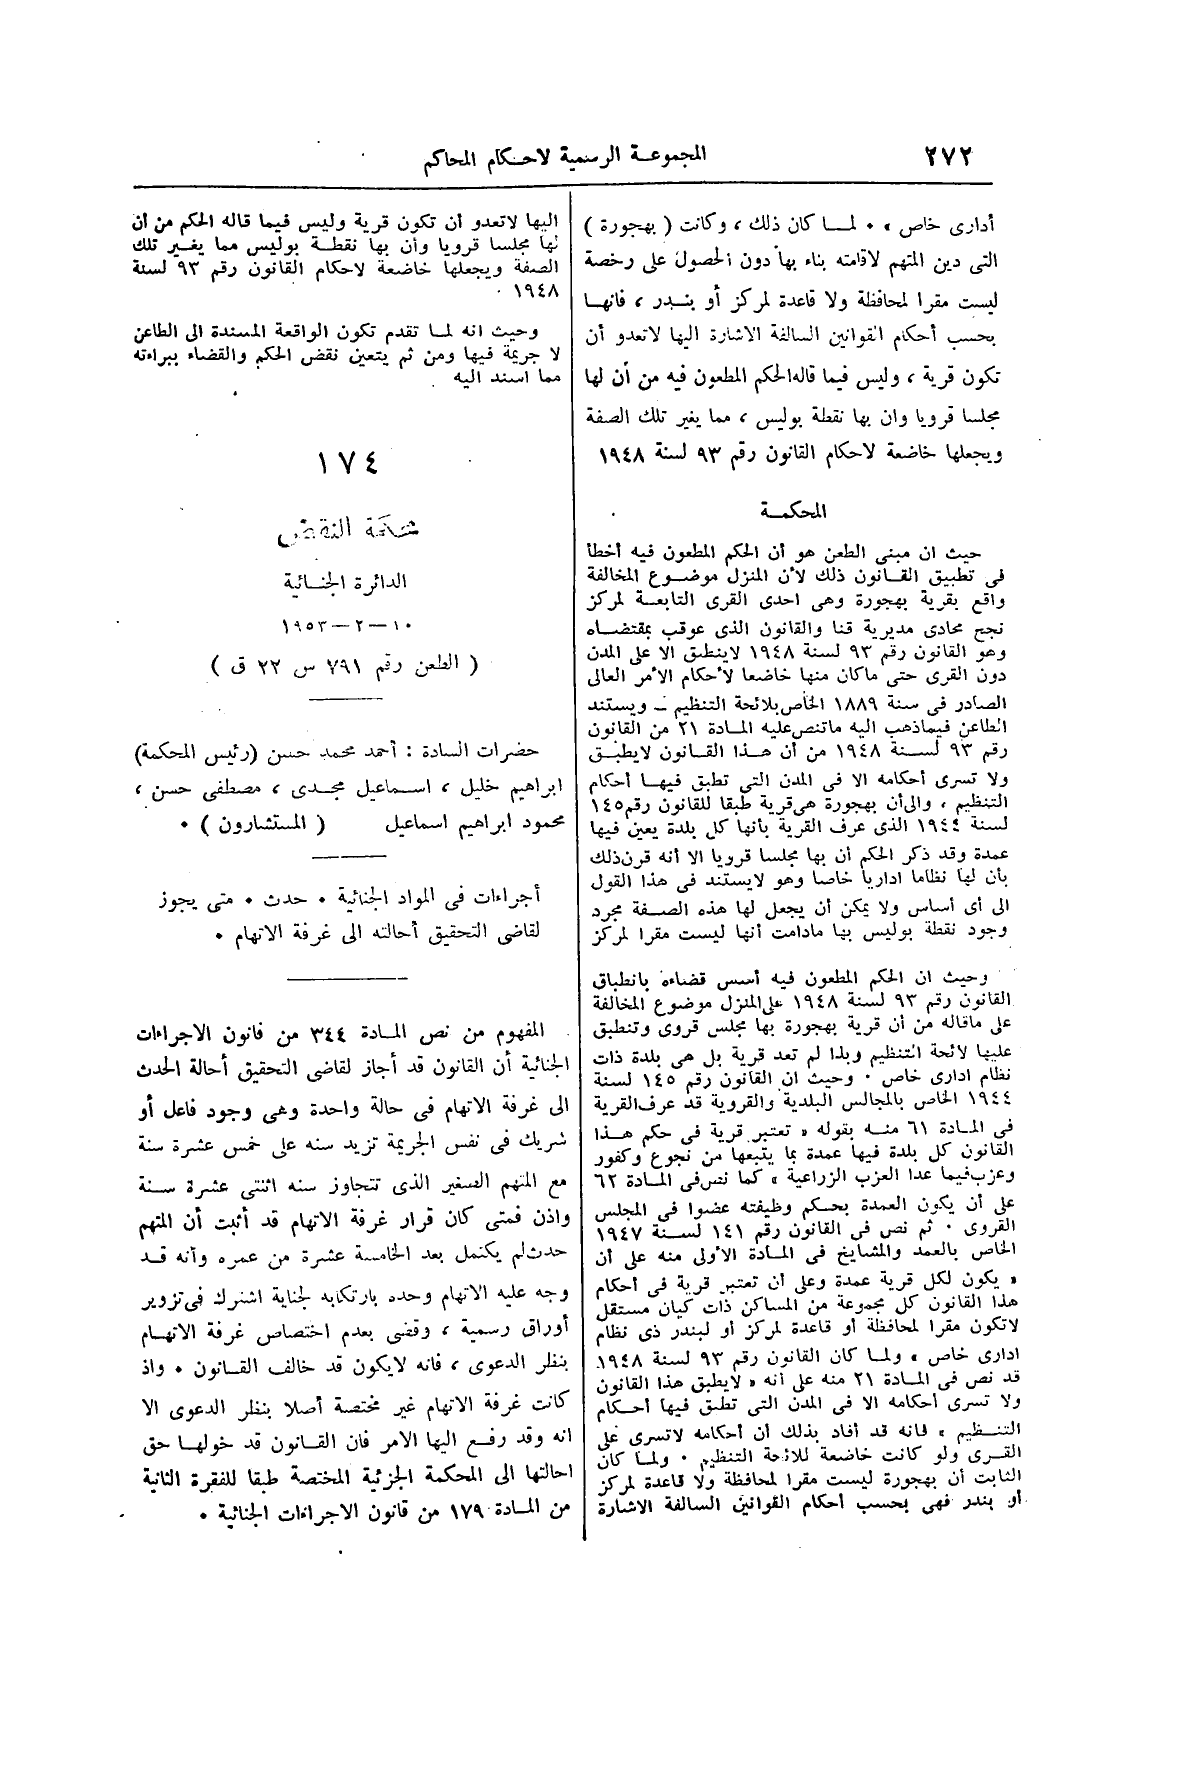 ٢٧٢
المجموعة الرسمية لاحكام المحاكم
أدارى خاص » . لما كان ذلك ، وكانت ( بهجورة )
التى دين المتهم لاقامته بناء بها دون الحصول على رخصة
ليست مقرا لمحافظة ولا قاعدة لمركز أو بندر ، فانها
بحسب أحكام القوانين السالفة الاشارة اليها لاتعدو أن
تكون قرية ، وليس فيما قاله الحكم المطعون فيه من أن لها
مجلسا قرويا وان بها نقطة بوليس ، مما يغير تلك الصفة
ويجعلها خاضعة لاحكام القانون رقم ٩٣ لسنة ١٩٤٨
المحكمة
حيث ان مبنى الطعن هو أن الحكم المطعون فيه أخطأ
فى تطبيق القانون ذلك لأن المنزل موضوع المخالفة
واقع بقرية بهجورة وهى احدى القرى التابعة لمركز
نجح محادى مديرية قنا والقانون الذى عوقب بمقتضاه
وهو القانون رقم ٩٣ لسنة ١٩٤٨ لاينطبق الا على المدن
دون القرى حتى ماكان منها خاضعا لأحكام الأمر العالى
الصادر فى سنة ١٨٨٩ الخاص بلائحة التنظيم ـ ويستند
الطاعن فيماذهب اليه ماتنص عليه المادة ٢١ من القانون
رقم ٩٣ لسنة ١٩٤٨ من أن هذا القانون لايطبق
ولا تسرى أحكامه الا فى المدن التى تطبق فيها أحكام
التنظيم ، والى أن بهجورة هى قرية طبقا للقانون رقم ١٤٥
لسنة ١٩٤٤ الذى عرف القرية بأنها كل بلدة يعين فيها
عمدة وقد ذكر الحكم أن بها مجلسا قرويا الا أنه قرن ذلك
بأن لها نظاما اداريا خاصا وهو لايستند فى هذا القول
الى أى أساس ولا يمكن أن يجعل لها هذه الصفة مجرد
وجود نقطة بوليس بها مادامت أنها ليست مقرا لمركز
وحيث ان الحكم المطعون فيه أسس قضاءه بانطباق
القانون رقم ٩٣ لسنة ١٩٤٨ على المنزل موضوع المخالفة
على ماقاله من أن قرية بهجورة بها مجلس قروى وتنطبق
عليها لائحة التنظيم وبذا لم تعد قرية بل هى بلدة ذات
نظام ادارى خاص . وحيث ان القانون رقم ١٤٥ لسنة
١٩٤٤ الخاص بالمجالس البلدية والقروية قد عرف القرية
فى المادة ٦١ منه بقوله « تعتبر قرية فى حكم هذا
القانون كل بلدة فيها عمدة بما يتبعها من نجوع وكفور
وعزب فيما عدا العزب الزراعية » كما نص فى المادة ٦٢
على أن يكون العمدة بحكم وظيفته عضوا فى المجلس
القروى . ثم نص فى القانون رقم ١٤١ لسنة ١٩٤٧
الخاص بالعمد والمشايخ فى المادة الأولى منه على أن
« يكون لكل قرية عمدة وعلى أن تعتبر قرية فى أحكام
هذا القانون كل مجموعة من المساكن ذات كيان مستقل
لاتكون مقرا لمحافظة أو قاعدة لمركز أو لبندر ذى نظام
ادارى خاص » ولما كان القانون رقم ٩٣ لسنة ١٩٤٨
قد نص فى المادة ٢١ منه على أنه « لايطبق هذا القانون
ولا تسرى أحكامه الا فى المدن التى تطبق فيها أحكام
التنظيم » فانه قد أفاد بذلك أن أحكامه لاتسرى على
القرى ولو كانت خاضعة للائحة التنظيم . ولما كان
الثابت أن بهجورة ليست مقرا لمحافظة ولا قاعدة لمركز
أو بندر فهى بحسب أحكام القوانين السالفة الاشارة
اليها لاتعدو أن تكون قرية وليس فيما قاله الحكم من أن
لها مجلسا قرويا وأن بها نقطة بوليس مما يغير تلك
الصفة ويجعلها خاضعة لاحكام القانون رقم ٩٣ لسنة
١٩٤٨ .
وحيث انه لما تقدم تكون الواقعة المسندة الى الطاعن
لا جريمة فيها ومن ثم يتعين نقض الحكم والقضاء ببراءته
مما اسند اليه .
١٧٤
محكمة النقض
الدائرة الجنائية
١٠ - ٢ - ١٩٥٣
( الطعن رقم ٧٩١ س ٢٢ ق )
حضرات السادة : أحمد محمد حسن (رئيس المحكمة)
ابراهيم خليل ، اسماعيل مجدى ، مصطفى حسن ،
محمود ابراهيم اسماعيل ( المستشارون ) .
أجراءات فى المواد الجنائية . حدث . متى يجوز
لقاضى التحقيق أحالته الى غرفة الاتهام .
المفهوم من نص المادة ٣٤٤ من قانون الاجراءات
الجنائية أن القانون قد أجاز لقاضى التحقيق أحالة الحدث
الى غرفة الاتهام فى حالة واحدة وهى وجود فاعل أو
شريك فى نفس الجريمة تزيد سنه على خمس عشرة سنة
مع المتهم الصغير الذى تتجاوز سنه اثنتى عشرة سنة
واذن فمتى كان قرار غرفة الاتهام قد أثبت أن المتهم
حدث لم يكتمل بعد الخامسة عشرة من عمره وأنه قد
وجه عليه الاتهام وحده بارتكابه لجناية اشترك فى تزوير
أوراق رسمية ، وقضى بعدم اختصاص غرفة الاتهام
بنظر الدعوى ، فانه لايكون قد خالف القانون . واذ
كانت غرفة الاتهام غير مختصة أصلا بنظر الدعوى الا
انه وقد رفع اليها الامر فان القانون قد خولها حق
احالتها الى المحكمة الجزئية المختصة طبقا للفقرة الثانية
من المادة ١٧٩ من قانون الاجراءات الجنائية .